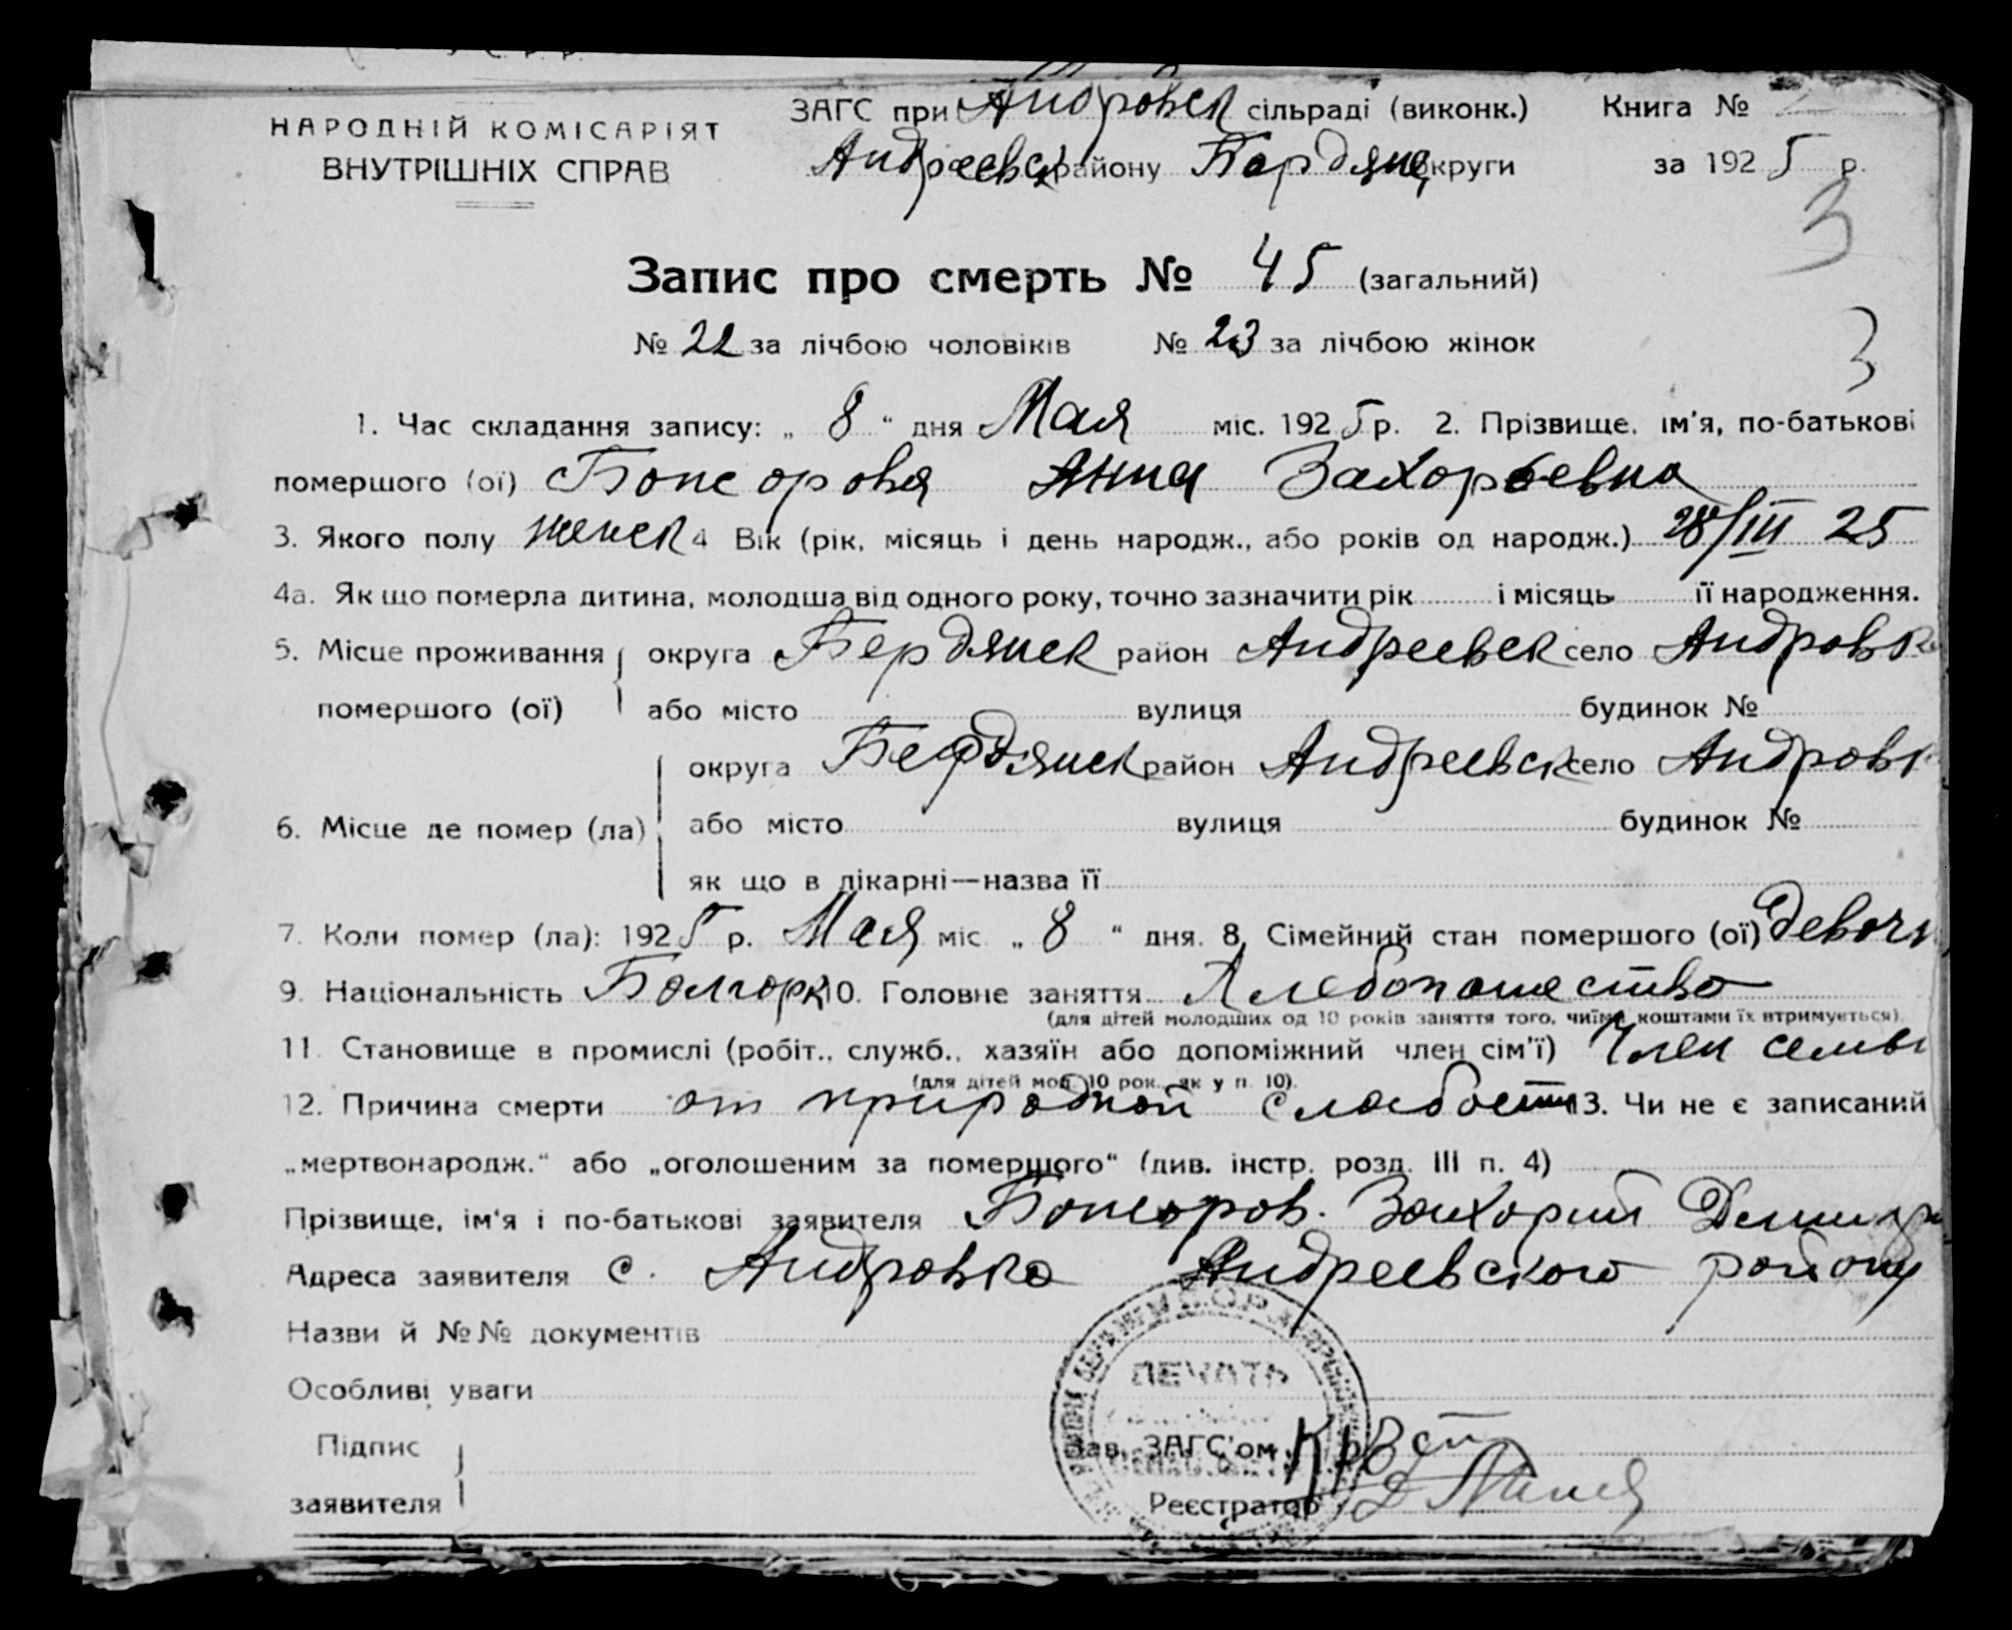 НАРОДНІЙ КОМІСАРІЯТ
ВНУТРІШНІХ СПРАВ
ЗАГС при Андровск сільраді (виконк.) Книга № 2
Андреевск району Бердянс округи за 1925 р.
3
Запис про смерть № 45 (загальний)
№ 22 за лічбою чоловіків № 23 за лічбою жінок
3
1. Час складання запису: „ 8 “ дня Мая міс. 1925 р. 2. Прізвище, ім'я, по-батькові
помершого (ої) Анна Захорьевна
3. Якого полу женск 4 Вік (рік, місяць і день народж., або років од народж.) 28/III 25
4а. Як що померла дитина, молодша від одного року, точно зазначити рік і місяць її народження.
5. Місце проживання округа Бердянск район Андреевск село Андровк
помершого (ої) або місто вулиця будинок №
округа Бердянск район Андреевск село Андровк
6. Місце де помер (ла) або місто вулиця будинок №
як що в лікарні—назва її
7. Коли помер (ла): 1925 р. Мая міс „ 8 “ дня. 8. Сімейний стан помершого (ої) девочк
9. Національність Болгорк 10. Головне заняття Хлебопашество
(для дітей молодших од 10 років заняття того, чиїми коштами їх втримується).
11. Становище в промислі (робіт., служб., хазяїн або допоміжний член сім'ї) Член семьи
(для дітей мол. 10 рок., як у п. 10).
12. Причина смерти от природной слабости 13. Чи не є записаний
„мертвонародж.“ або „оголошеним за помершого“ (див. інстр. розд. III п. 4)
Прізвище, ім'я і по-батькові заявителя Захорий
Адреса заявителя с. Андровка Андреевского району
Назви й №№ документів
Особливі уваги
ПЕЧАТЬ
Підпис
заявителя
Зав. ЗАГС'ом
Реєстратор